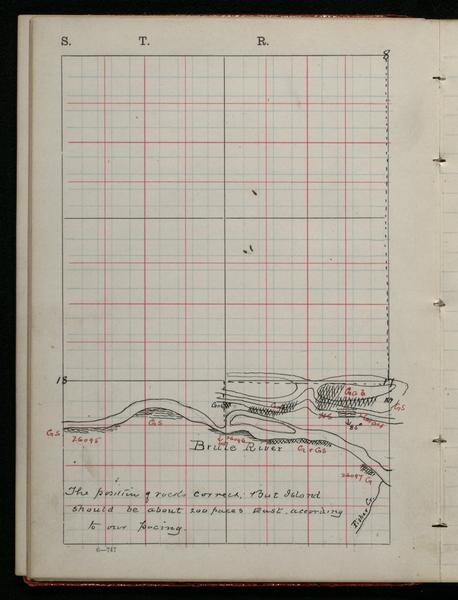 S. T. R.
8
18
17
GS
26095
GS
26096
G+GS
GS
85°
26097 G
Brule River
Fisher Cr.
The position of rocks correct. But Island
should be about 200 paces East, according
to our pacing.
6—747